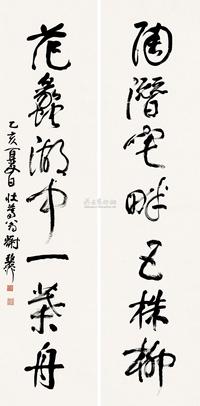 陶潜宅畔五株柳
范蠡湖中一叶舟
乙亥夏日 壮暮翁谢稚